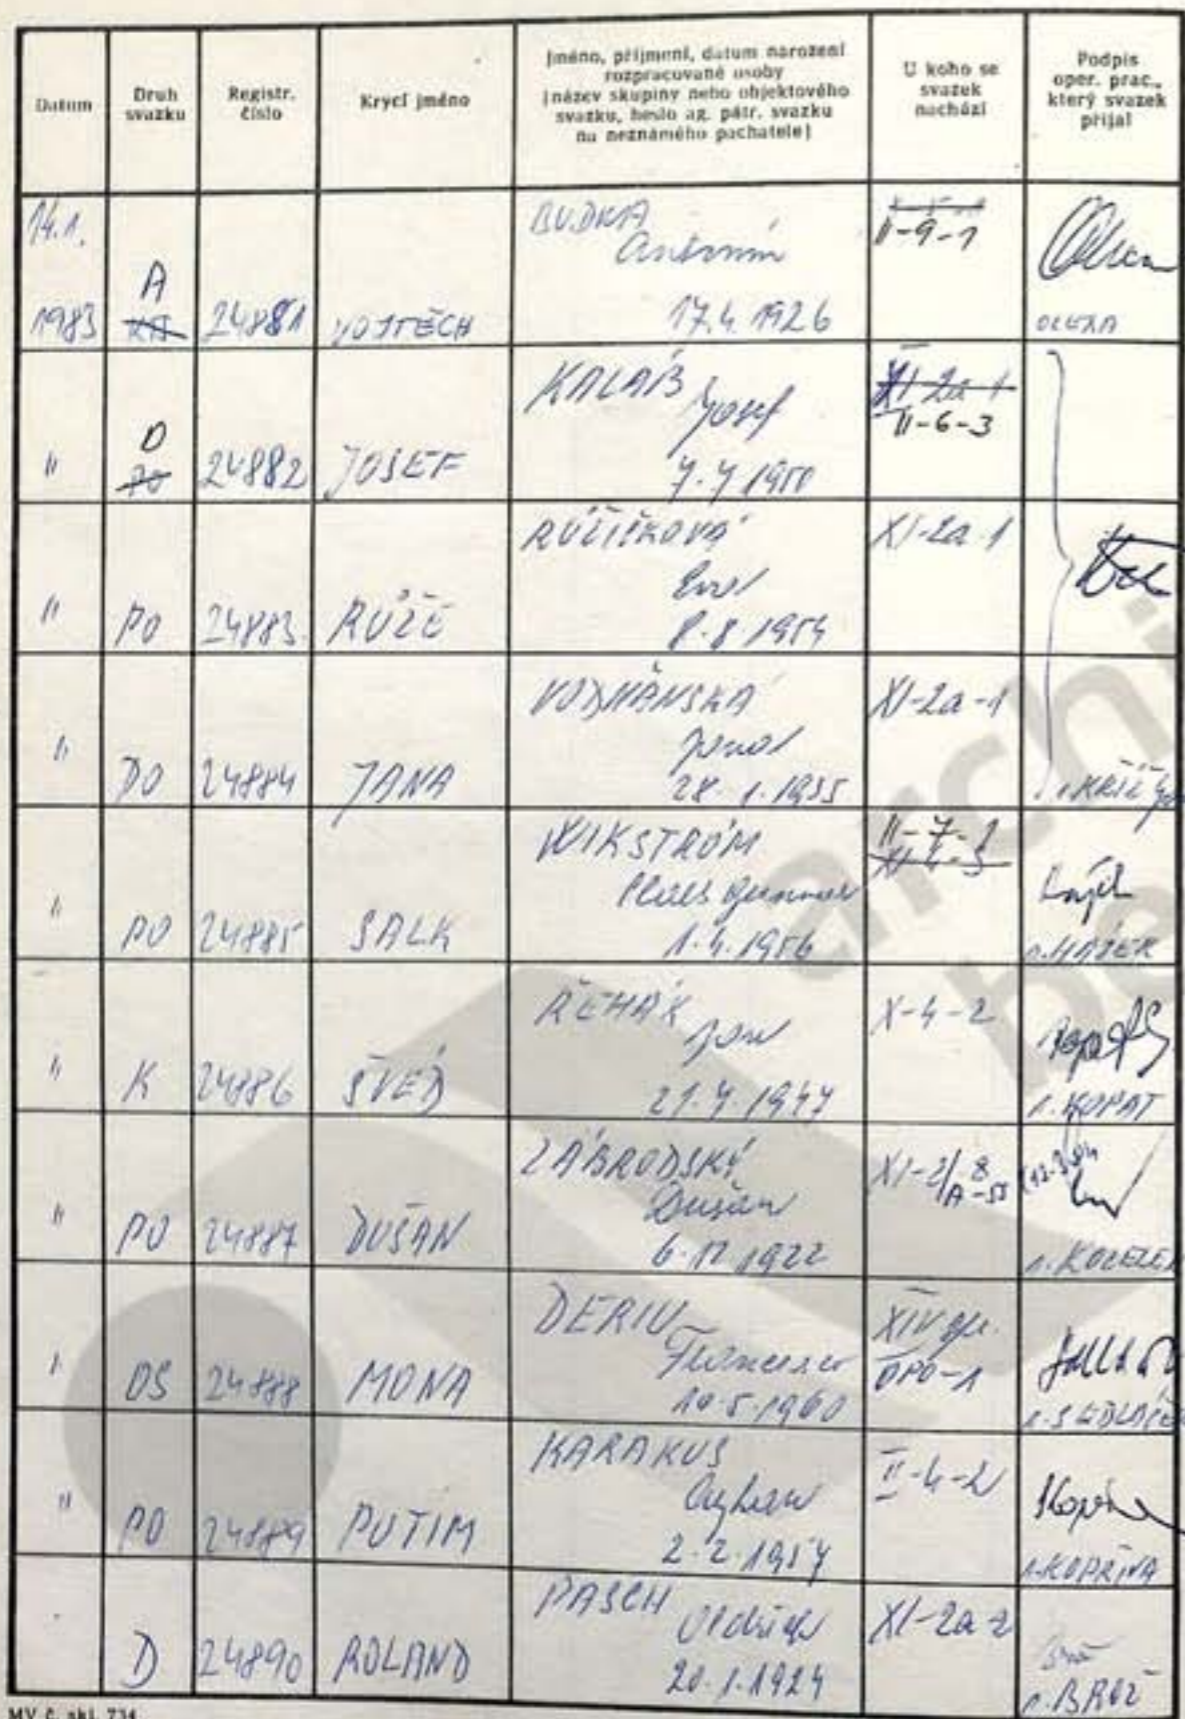 Datum
Druh
svazku
Registr.
číslo
Krycí jméno
Jméno, příjmení, datum narození
rozpracované osoby
(název skupiny nebo objektového
svazku, heslo ag. pátr. svazku
na neznámého pachatele)
U koho se
svazek
nachází
Podpis
oper. prac.,
který svazek
přijal
14.1.
1983
A
24881
VOJTĚCH
BUDKA
Antonín
17.4.1926
II-9-1
OLEXA
"
D
PO
24882
JOSEF
KALÁB
Josef
7.7.1950
XI-2a-1
II-6-3
"
PO
24883
RŮŽE
RŮŽIČKOVÁ
Eva
8.8.1954
XI-2a-1
"
DO
24884
JANA
VODŇANSKÁ
Jana
28.1.1955
XI-2a-1
"
PO
24885
SALK
WIKSTRÖM
Claes Gunnar
1.4.1956
II-7-1
XI-4-3
n.HÁJEK
"
K
24886
ŠVÉD
ŘEHÁK
Jan
21.7.1947
X-4-2
"
PO
24887
DUŠAN
ZÁBRODSKÝ
Dušan
6.12.1922
XI-2/A
"
OS
24888
MONA
DERIU
Francesco
10.5.1960
XIV
OPO-1
n.SEDLÁČEK
"
PO
24889
PUTIM
KARAKUS
Ayhan
2.2.1957
II-4-2
n.KOPŘIVA
D
24890
ROLAND
PASCH
Oldřich
20.1.1924
XI-2a-2
n.BROŽ
MV č. skl. 734
archi
be